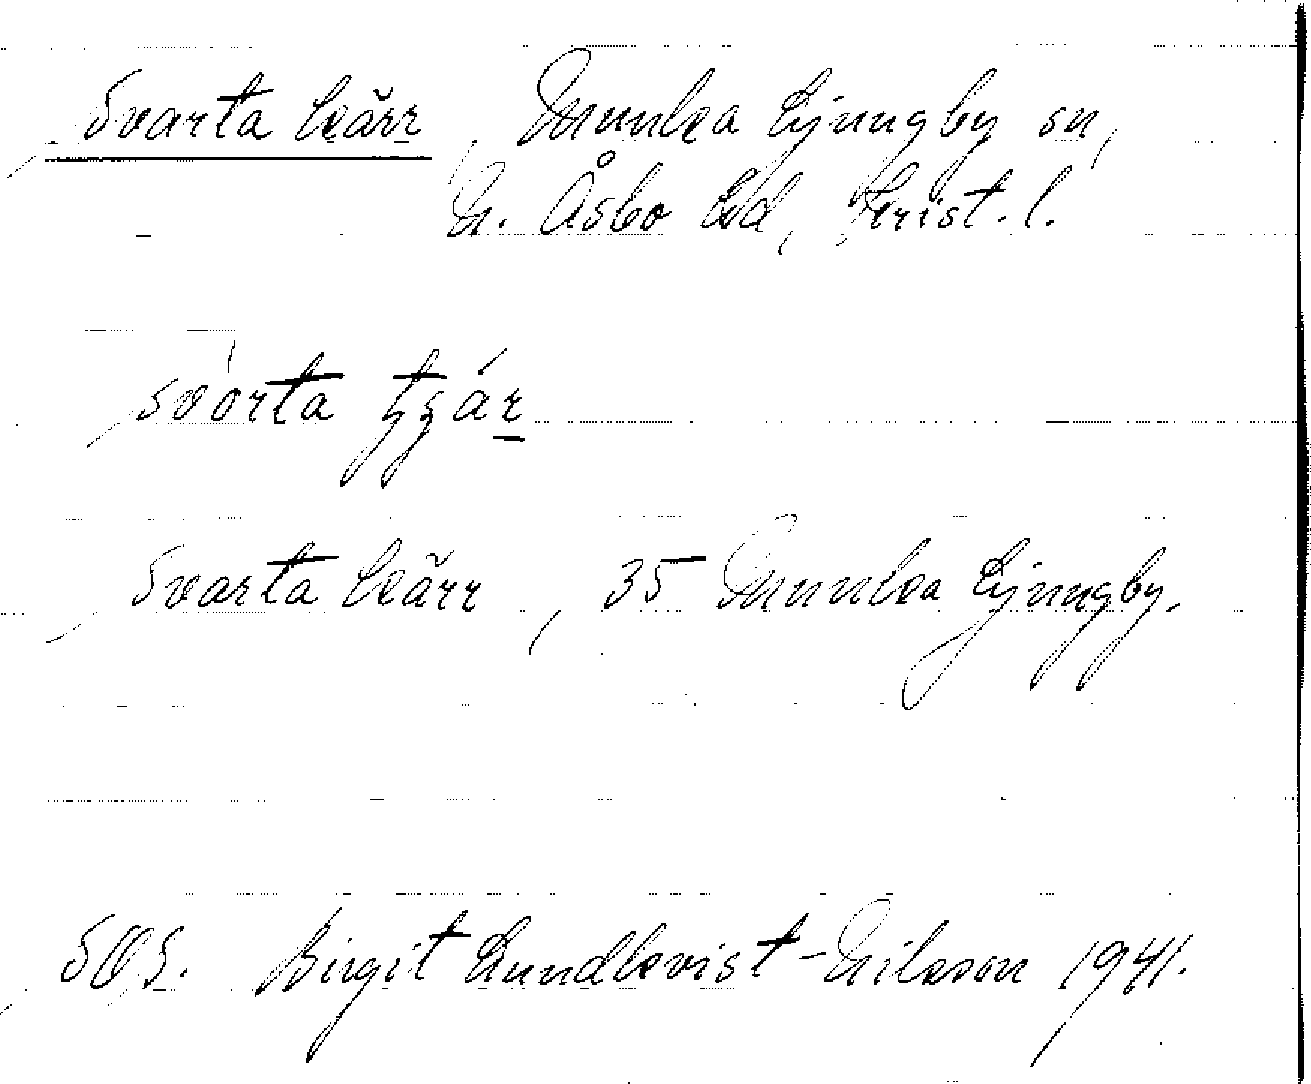 Svarta kärr, Munka Ljungby sn,
N. Åsbo hd, Krist. l.
Svarta kärr, 35 Munka Ljungby.
SOS. Birgit Lundkvist-Nilsson 1941.